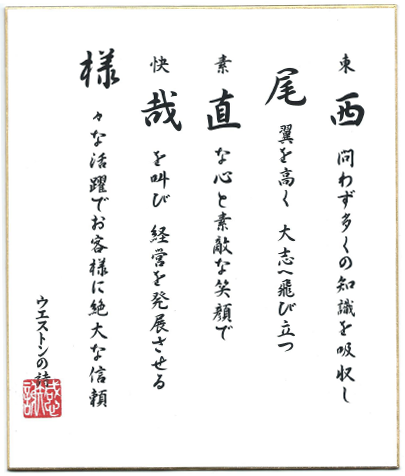 東西問わず多くの知識を吸収し
尾翼を高く 大志へ飛び立つ
素直な心と素敵な笑顔で
快哉を叫び 経営を発展させる
様々な活躍でお客様に絶大な信頼
ウエストンの詩
感謝